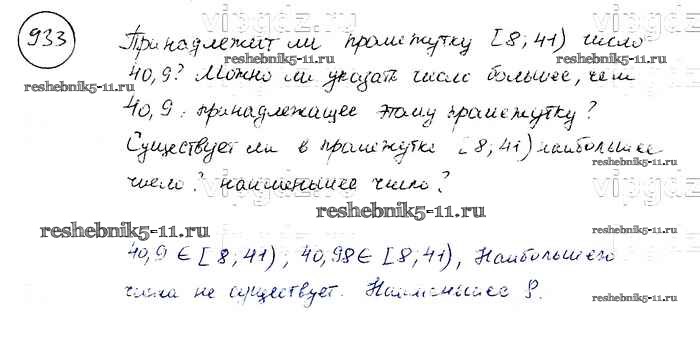 933
Принадлежит ли промежутку [8; 41) число
40,9? Можно ли указать число большее, чем
40,9, принадлежащее этому промежутку?
Существует ли в промежутке [8; 41) наибольшее
число? наименьшее число?
40,9 ∈ [8; 41), 40,98 ∈ [8; 41), Наибольшего
числа не существует. Наименьшее 8.
vipgdz
vipgdz
vipgdz
vipgdz
reshebnik5-11.ru
reshebnik5-11.ru
reshebnik5-11.ru
reshebnik5-11.ru
reshebnik5-11.ru
reshebnik5-11.ru
reshebnik5-11.ru